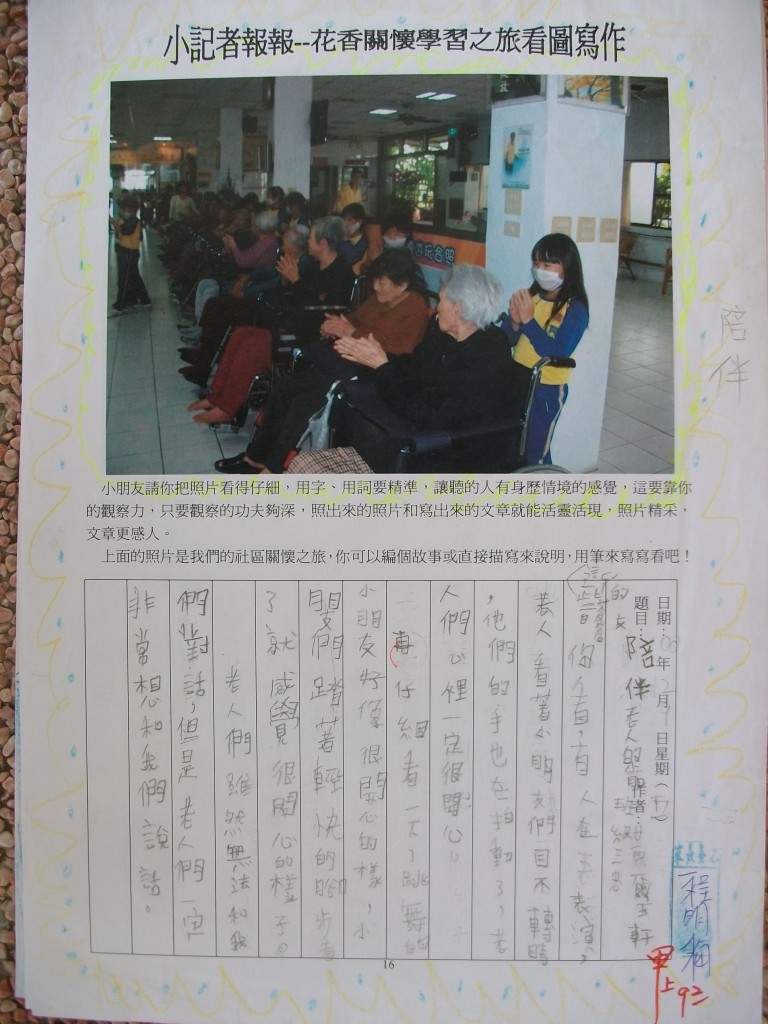 小記者報報--花香關懷學習之旅看圖寫作
陪伴
小朋友請你把照片看得仔細，用字、用詞要精準，讓聽的人有身歷情境的感覺，這要靠你
的觀察力，只要觀察的功夫夠深，照出來的照片和寫出來的文章就能活靈活現，照片精采，
文章更感人。
上面的照片是我們的社區關懷之旅，你可以編個故事或直接描寫來說明，用筆來寫寫看吧！
日期： 年 月 日星期（五）
題目：陪伴老人 作者：
班級三
你看，有人在表演，
老人看著小朋友們目不轉睛
，他們的手也在拍動了，老
人們心裡一定很開心。
再仔細看一下，跳舞的
小朋友好像很開心的樣，小
朋友們踏著輕快的腳步
了就感覺很開心的樣子。
老人們雖然無法和我
們對話，但是老人們一定
非常想和我們說話。
16
甲上92